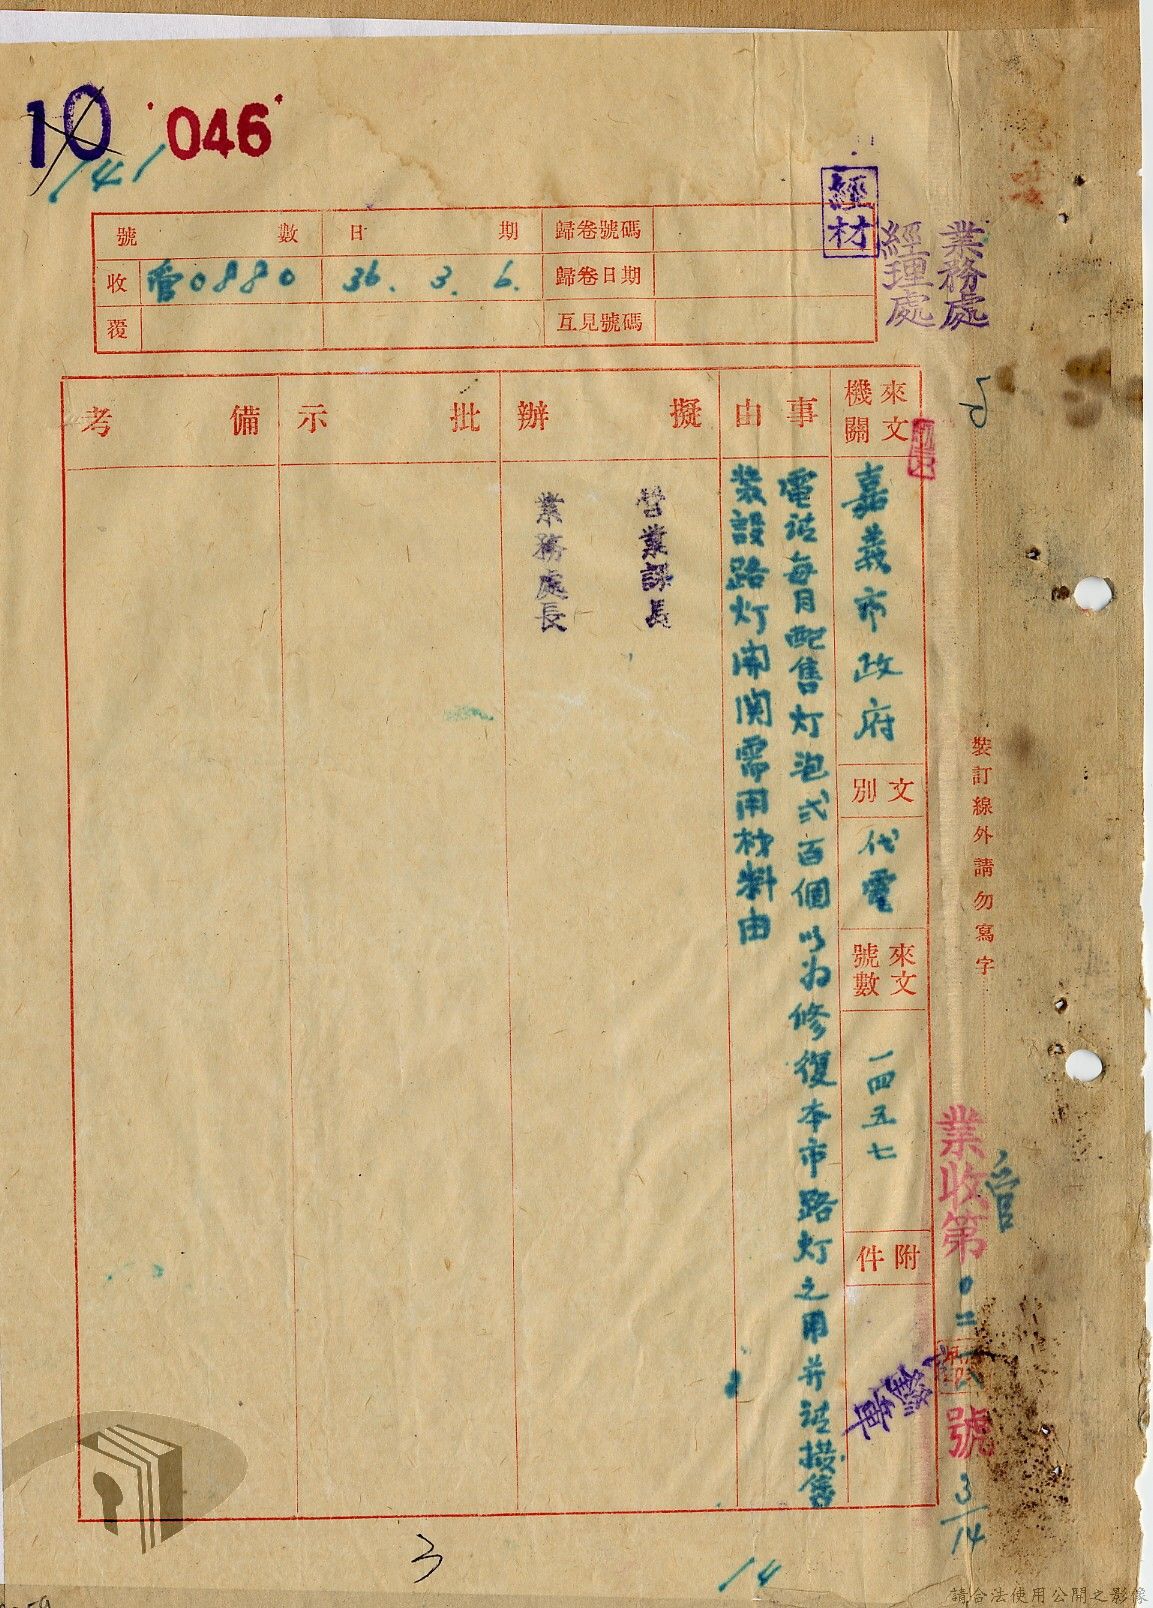 10
046
141
經材
業務處
經理處
號數
日期
歸卷號碼
收
管0880
36.3.6.
歸卷日期
覆
互見號碼
來文機關
嘉義市政府
文別
代電
來文號數
一四五七
附件
事由
電請每月配售灯泡弍百個以为修復本市路灯之用并請撥售
裝設路灯開関需用材料由
擬辦
營業課長
業務處長
批示
備考
裝訂線外請勿寫字
業收第
號
3/14
3
14
請合法使用公開之影像